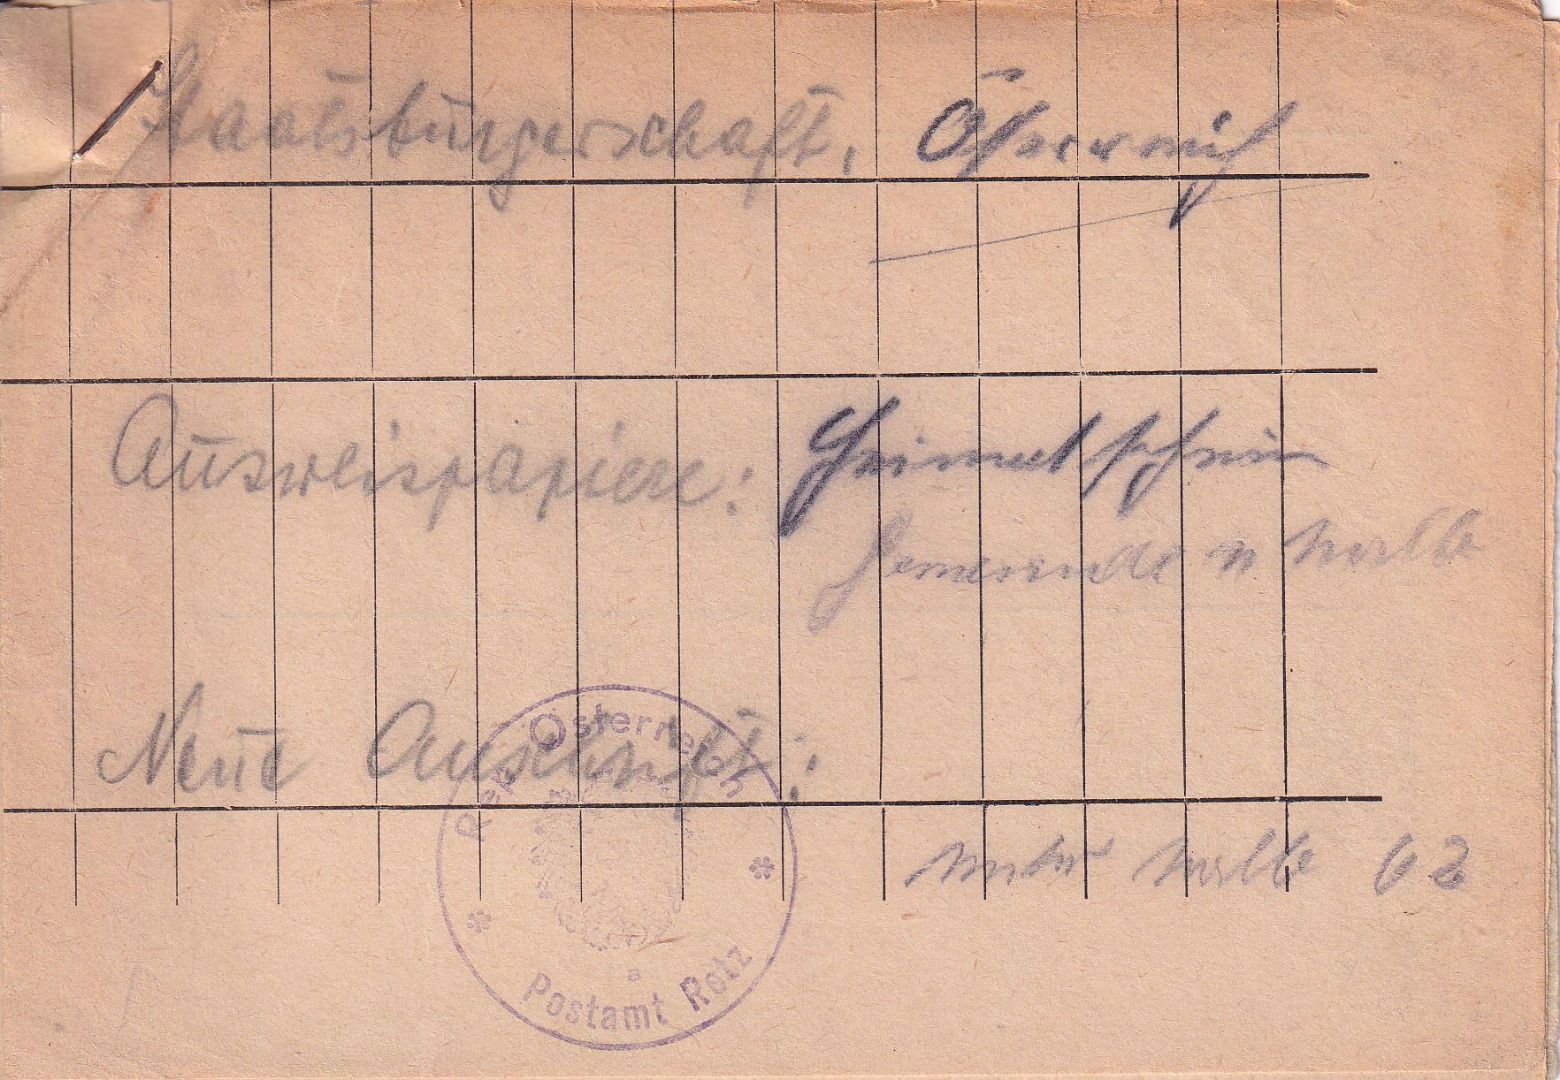 Staatsbürgerschaft, Österreich
Ausweispapiere: Heimatschein
Gemeinde
Neue Anschrift:
62
Rep. Österreich
a
Postamt Rotz